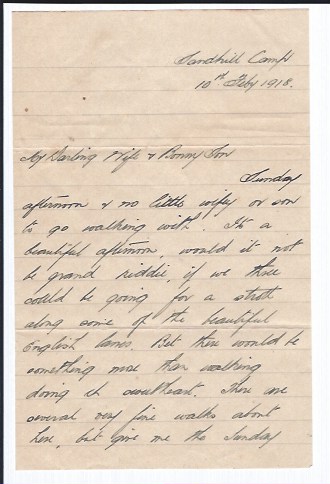 Sandhill Camp
10th Feby 1918.
My Darling Wife & Bonny Son
Sunday
afternoon & no little wifey or son
to go walking with. It's a
beautiful afternoon, would it not
be grand, if we three
could be going for a stroll
along some of the beautiful
English lanes. But there would be
something more than walking
doing eh sweetheart. There are
several very fine walks about
here, but give me the Sunday